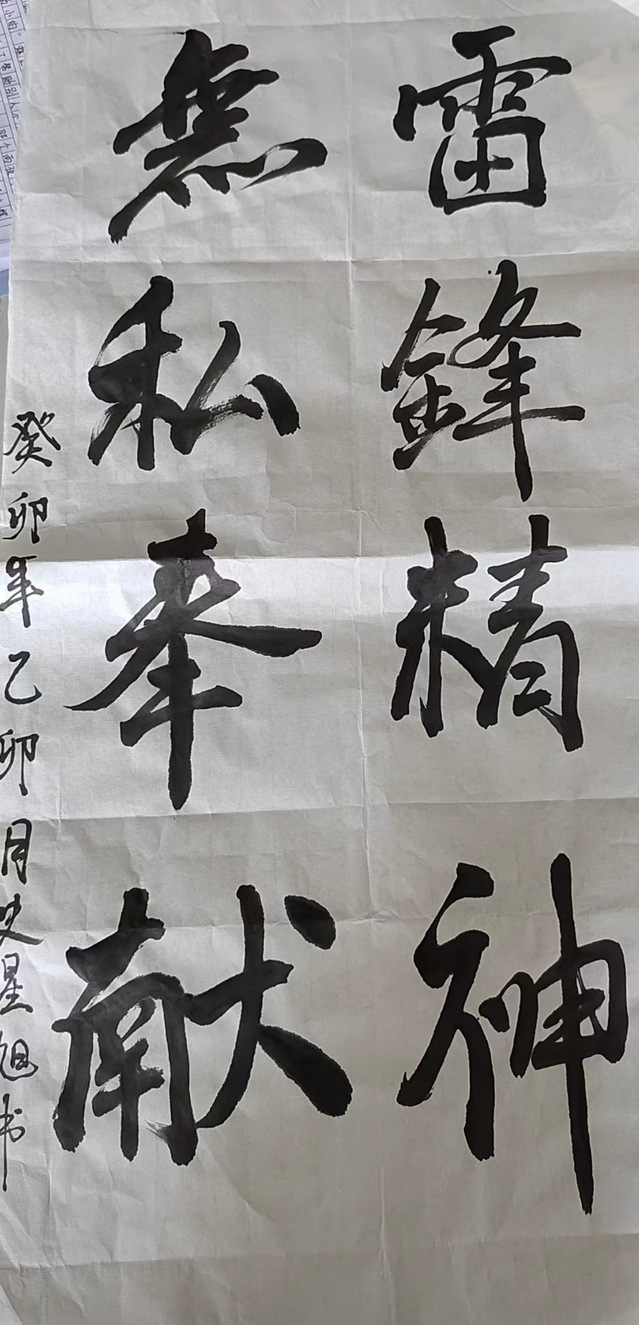 雷鋒精神
無私奉献
癸卯年乙卯月史星旭书